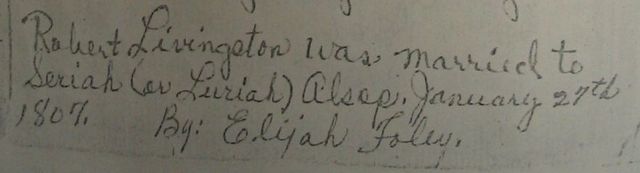 Robert Livingston was married to
Seriah (or Luriah) Alsop. January 27th
1807. By: Elijah Foley.